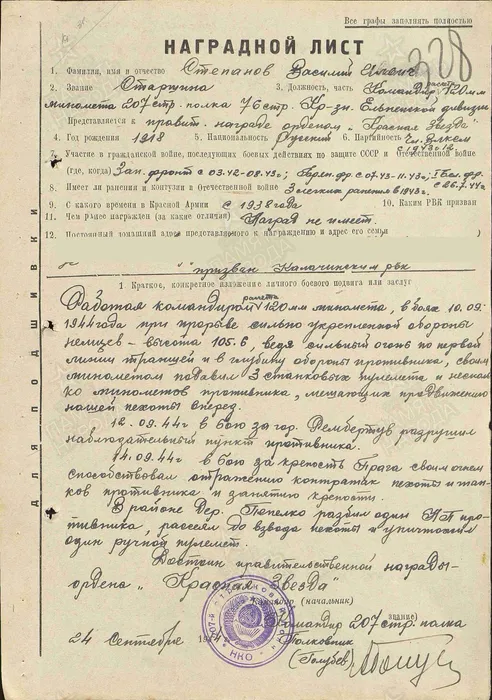 Все графы заполнять полностью
328
НАГРАДНОЙ ЛИСТ
1. Фамилия, имя и отчество Степанов Василий
2. Звание Старшина 3. Должность, часть Командир расчета 120мм
миномета 207 стр. полка 76 стр. Кр-зн. Ельнинской дивизии
Представляется к правит. награде орденом „Красная Звезда"
4. Год рождения 1918 5. Национальность Русский 6. Партийность Чл. ВЛКСМ
с 1943г.
7. Участие в гражданской войне, последующих боевых действиях по защите СССР и Отечественной войне
(где, когда) Зап. фронт с 03.42-08.43г; с 07.43-11.43г; I Бел. фр.
с 26.7.44г
8. Имеет ли ранения и контузии в Отечественной войне 3 легких ранения в 1943г.
9. С какого времени в Красной Армии с 1938 года 10. Каким РВК призван
11. Чем ранее награжден (за какие отличия) Наград не имеет.
12. Постоянный домашний адрес представляемого к награждению и адрес его семьи
призван Калачинским рвк
1 Краткое, конкретное изложение личного боевого подвига или заслуг
Работая командиром расчета 120мм миномета, в боях 10.09.
1944 года при прорыве сильно укрепленной обороны
немцев - высота 105.6, ведя сильный огонь по первой
линии траншей и в глубину обороны противника, своим
минометом подавил 3 станковых пулемета и несколь
ко минометов противника, мешающих продвижению
нашей пехоты вперед.
12.09.44г в бою за гор. Рембертув разрушил
наблюдательный пункт противника.
14.09.44г в бою за крепость Прага своим огнем
способствовал отражению контратак пехоты и тан
ков противника и занятию крепости.
В районе Дер. разбил один НП про-
тивника, рассеял до взвода пехоты и уничтожил
один ручной пулемет.
Достоин правительственной награды-
ордена „Красная Звезда"
Командир (начальник)
Командир 207 стр. полка
звание)
Полковник
24 Сентябре 194
(Голубев)
НКО
ДЛЯ ПОДШИВКИ